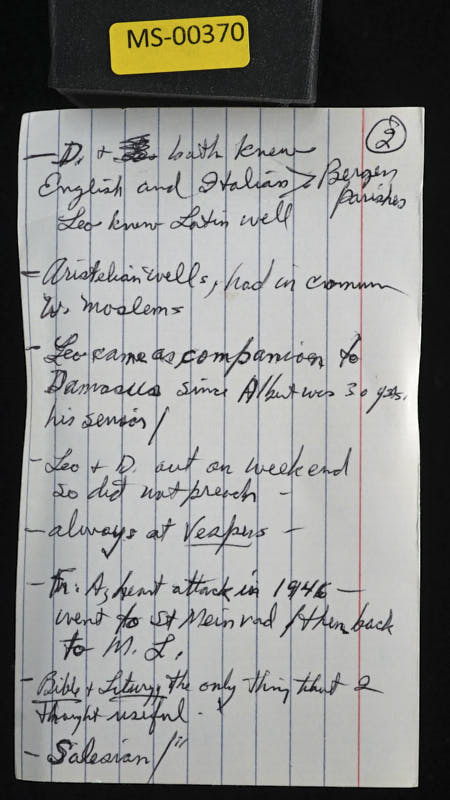 MS-00370
2
- D. + both knew
English and Italian > Bergen
parishes
Leo knew Latin well
- Aristelian wells, had in common
w. Moslems
- Leo came as companion to
Damasus since Albert was 30 yrs.
his senior/
- Leo + D. out on weekend
so did not preach -
- always at Vespers -
- Fr. A, heart attack in 1946 -
went to St Meinrad / then back
to M. L.
- Bible + Liturgy, the only thing that 2
thought useful -
- Salesian /"